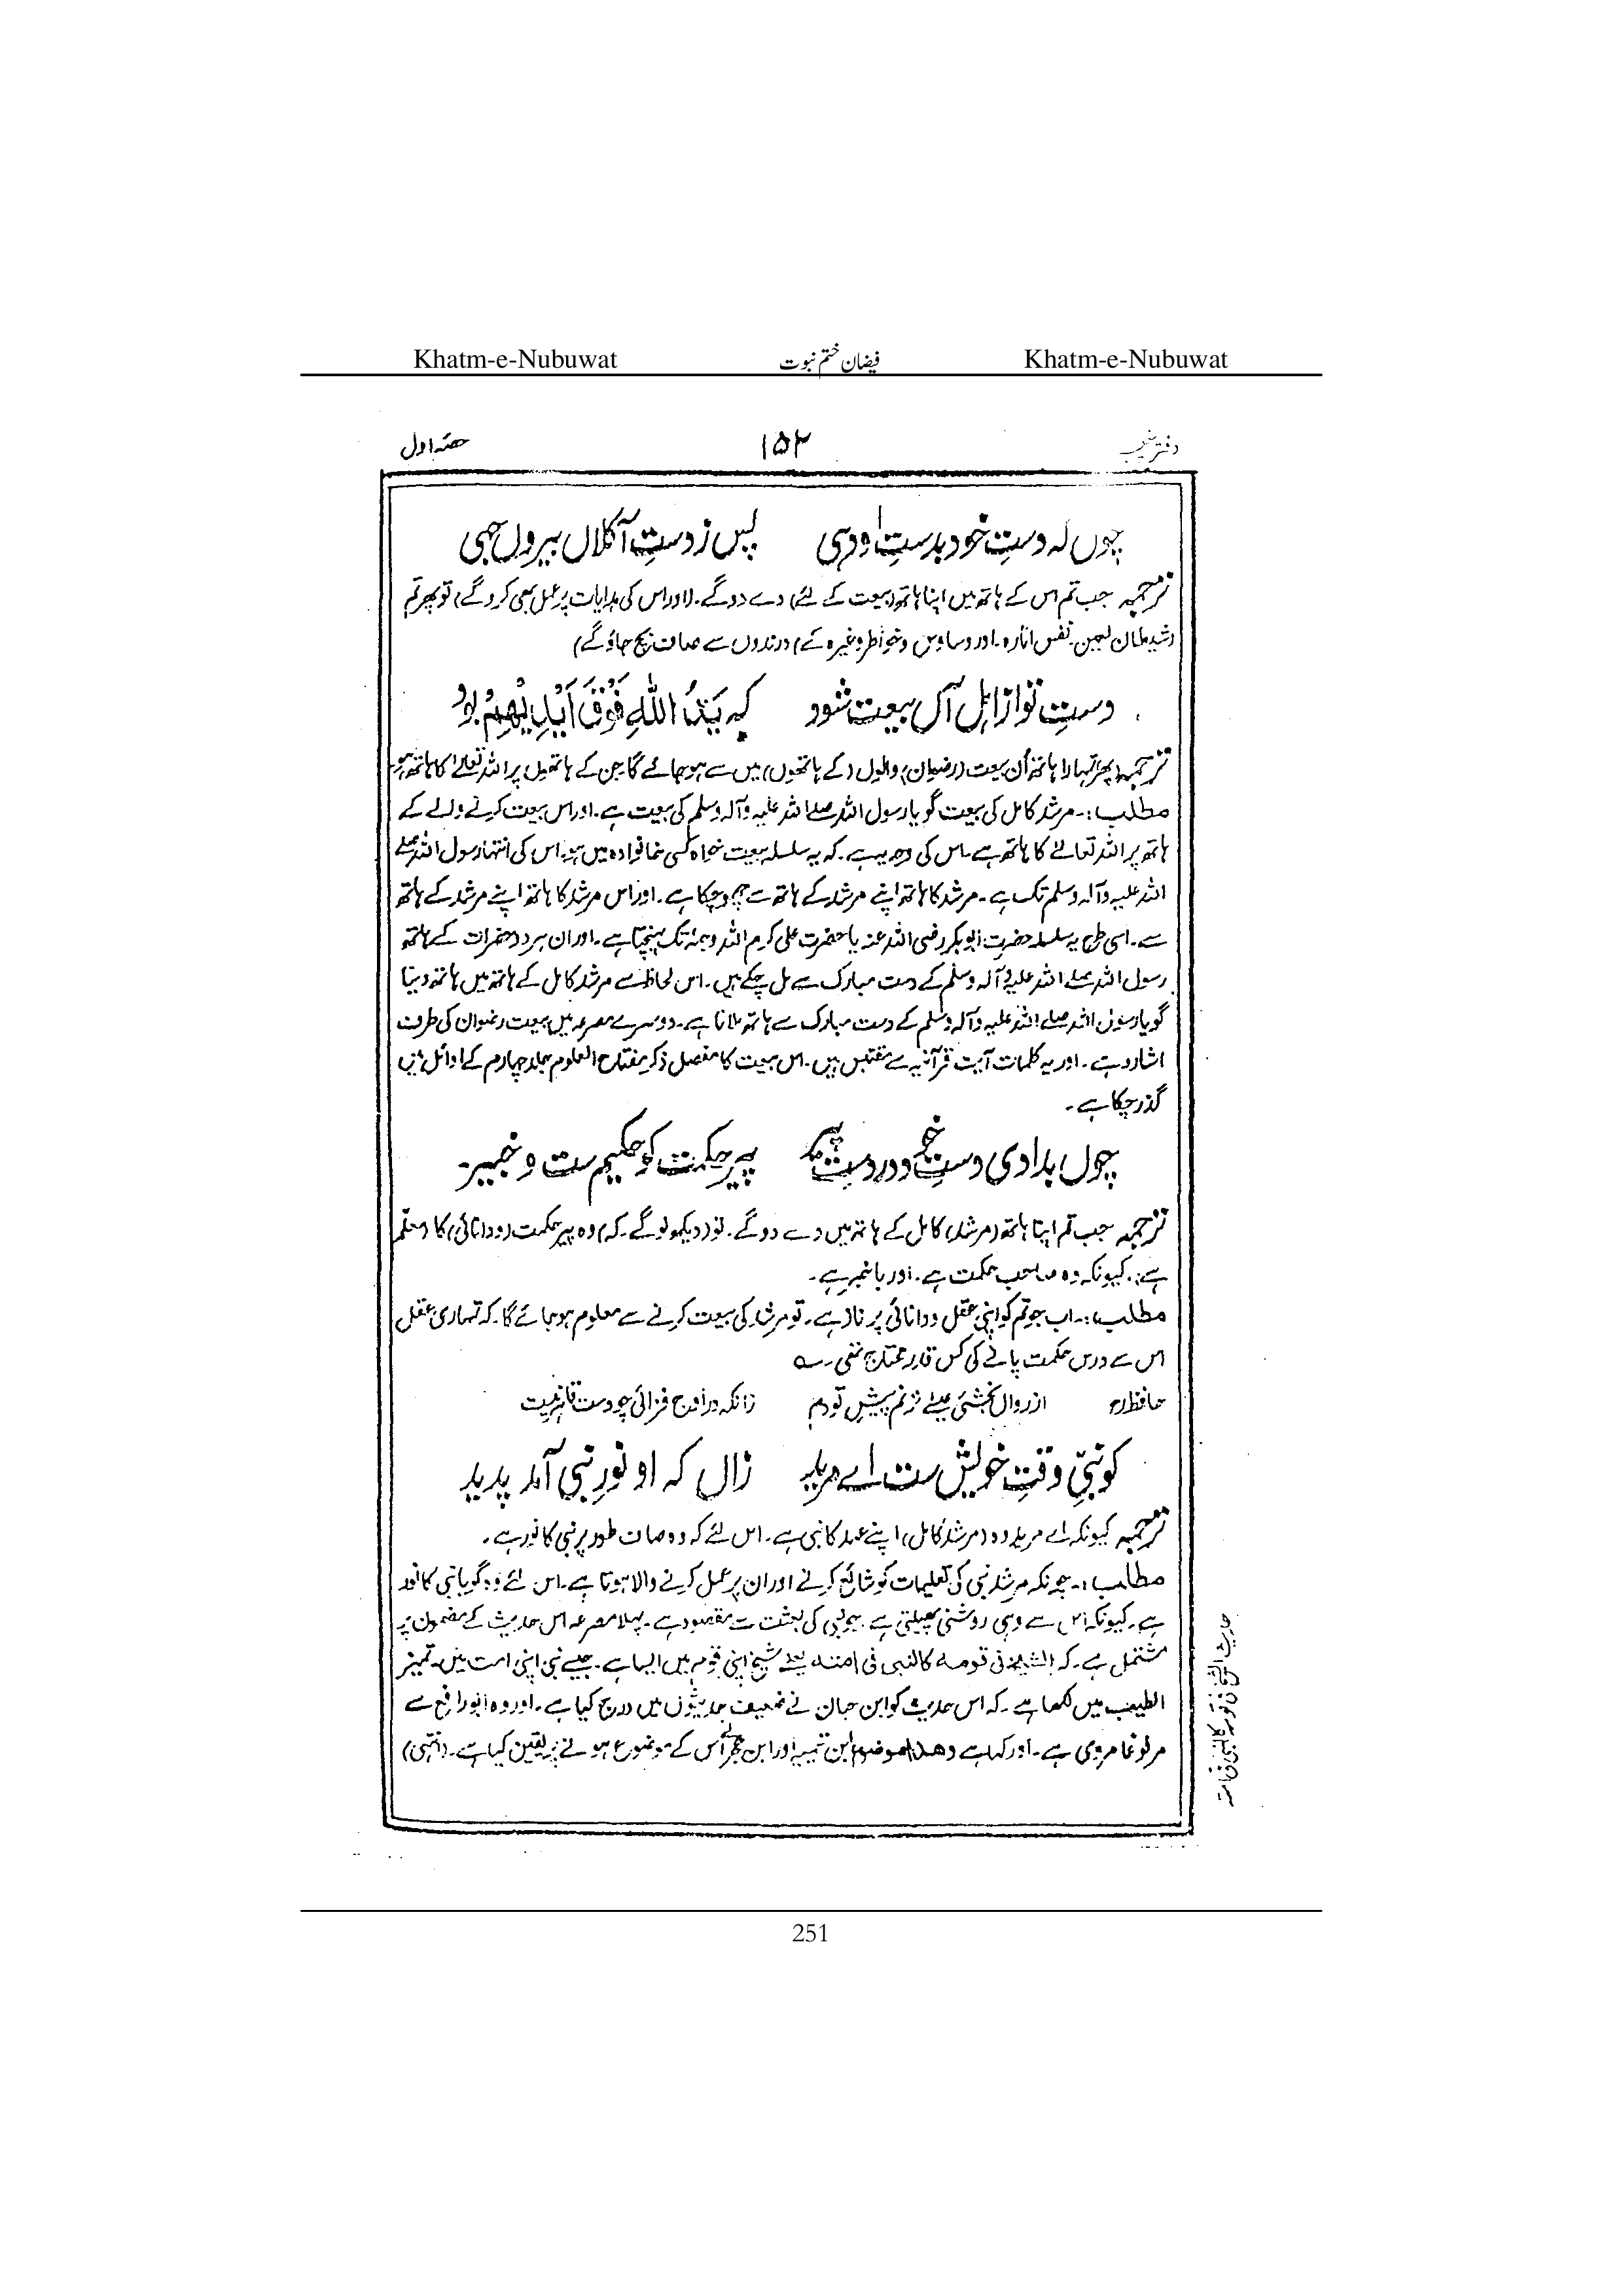 Khatm-e-Nubuwat فیضان ختم نبوت Khatm-e-Nubuwat
دفتر ۱۵۲ حصّہ اول
چوں کہ دستِ خود بدستِ او دہی پس ز دستِ آکلاں بیروں جہی
ترجمہ جب تم اس کے ہاتھ میں اپنا ہاتھ (بیعت کے لئے) دے دو گے۔ (اور اس کی ہدایات پر عمل بھی کرو گے) تو پھر تم
(شیطان لعین۔ نفس امّارہ۔ اور وساوس و خواطر وغیرہ کے) درندوں سے صاف بچ جاؤ گے)
دستِ تو از اہلِ آں بیعت شود کہ یَدُ اللّٰہِ فَوْقَ اَیْدِیْہِمْ بود
ترجمہ (پھر) تمہارا ہاتھ اُن بیعت (رضوان) والوں (کے ہاتھوں) میں سے ہو جائے گا جن کے ہاتھوں پر اللہ تعالےٰ کا ہاتھ ہو
مطلب:۔ مرشد کامل کی بیعت گویا رسول اللہ صلے اللہ علیہ وآلہ وسلم کی بیعت ہے۔ اور اس بیعت کرنے والے کے
ہاتھ پر اللہ تعالےٰ کا ہاتھ ہے۔ اس کی وجہ یہ ہے۔ کہ یہ سلسلہ بیعت خواہ کسی خانوادہ میں ہو، اس کی انتہا رسول اللہ صلے
اللہ علیہ وآلہ وسلم تک ہے۔ مرشد کا ہاتھ اپنے مرشد کے ہاتھ سے چھو چکا ہے۔ اور اس مرشد کا ہاتھ اپنے مرشد کے ہاتھ
سے۔ اسی طرح یہ سلسلہ حضرت ابوبکر رضی اللہ عنہ یا حضرت علی کرم اللہ وجہہٗ تک پہنچتا ہے۔ اور ان ہر دو حضرات کے ہاتھ
رسول اللہ صلے اللہ علیہ وآلہ وسلم کے دست مبارک سے مل چکے ہیں۔ اس لحاظ سے مرشد کامل کے ہاتھ میں ہاتھ دینا
گویا رسول اللہ صلے اللہ علیہ وآلہ وسلم کے دست مبارک سے ہاتھ ملانا ہے۔ دوسرے مصرعہ میں بیعت رضوان کی طرف
اشارہ ہے۔ اور یہ کلمات آیت قرآنیہ سے مقتبس ہیں۔ اس بیعت کا مفصل ذکر مفتاح العلوم جلد چہارم کے اوائل میں
گذر چکا ہے۔
چوں بدادی دستِ خود در دستِ پیر پیرِ حکمت کو حکیم ست و خبیر
ترجمہ جب تم اپنا ہاتھ (مرشد) کامل کے ہاتھ میں دے دو گے۔ تو (دیکھ لو گے۔ کہ) وہ پیر حکمت (و دانائی) کا (معلّم
ہے)۔ کیونکہ وہ صاحب حکمت ہے۔ اور باخبر ہے۔
مطلب:۔ اب جو تم کو اپنی عقل و دانائی پر ناز ہے۔ تو مرشد کی بیعت کرنے سے معلوم ہو جائے گا۔ کہ تمہاری عقل
اس سے درس حکمت پانے کی کس قدر محتاج تھی۔ ؎
حافظؒ از رواں بخشیٔ عیسےٰ نزنم پیشِ تو دم زانکہ در روح فزائی چو دست قاہر نیست
کو نبیِّ وقتِ خویش ست اے مرید زاں کہ او نورِ نبی آمد پدید
ترجمہ کیونکہ اے مرید وہ (مرشد کامل) اپنے عہد کا نبی ہے۔ اس لئے کہ وہ صاف طور پر نبی کا نور ہے۔
مطلب:۔ چونکہ مرشد نبی کی تعلیمات کو شائع کرنے اور ان پر عمل کرنے والا ہوتا ہے۔ اس لئے وہ گویا نبی کا نور
ہے۔ کیونکہ اس سے وہی روشنی پھیلتی ہے۔ جو نبی کی بعثت سے مقصود ہے۔ پہلا مصرعہ اس حدیث کے مضمون پر
مشتمل ہے۔ کہ الشیخ فی قومہ کالنبی فی امتہ یعنے شیخ اپنی قوم میں ایسا ہے۔ جیسے نبی اپنی امت میں۔ تمییز
الطیب میں لکھا ہے۔ کہ اس حدیث کو ابن حبان نے ضعیف حدیثوں میں درج کیا ہے۔ اور وہ ابو رافع سے
مرفوعا مروی ہے۔ اور کہا ہے وھذا موضوع ابن تیمیہ اور ابن حجر نے اس کے موضوع ہونے پر یقین کیا ہے۔ (انتہی)
حدیث الشیخ فی قومہ کالنبی فی امتہ
251